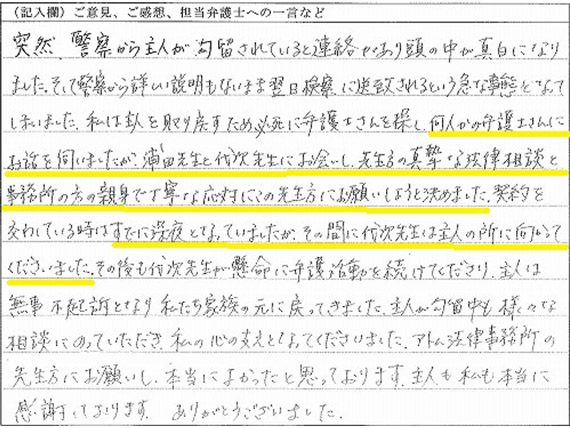 (記入欄)ご意見、ご感想、担当弁護士への一言など
突然、警察から主人が勾留されていると連絡があり頭の中が真白になり
ました。そして警察から詳しい説明もないまま翌日検察に送致されるという急な事態となって
しまいました。私は主人を取り戻すため、必死に弁護士さんを探し、何人かの弁護士さんに
お話を伺いましたが、浦田先生と代次先生にお会いし、先生方の真摯な法律相談と
事務所の方の親身で丁寧な応対にこの先生方にお願いしようと決めました。契約を
交わしている時はすでに深夜となっていましたが、その間に代次先生は主人の所に向かって
くださいました。その後も代次先生が懸命に弁護活動を続けてくださり、主人は
無事不起訴となり私たち家族の元に戻ってきました。主人が勾留中も様々な
相談にのっていただき、私の心の支えとなってくださいました。アトム法律事務所の
先生方にお願いし、本当によかったと思っております。主人も私も本当に
感謝しております。 ありがとうございました。